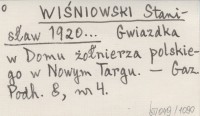 o WIŚNIOWSKI Stani-
sław 1920... Gwiazdka
w Domu żołnierza polskie-
go w Nowym Targu. — Gaz
Podh. 8, nr 4.